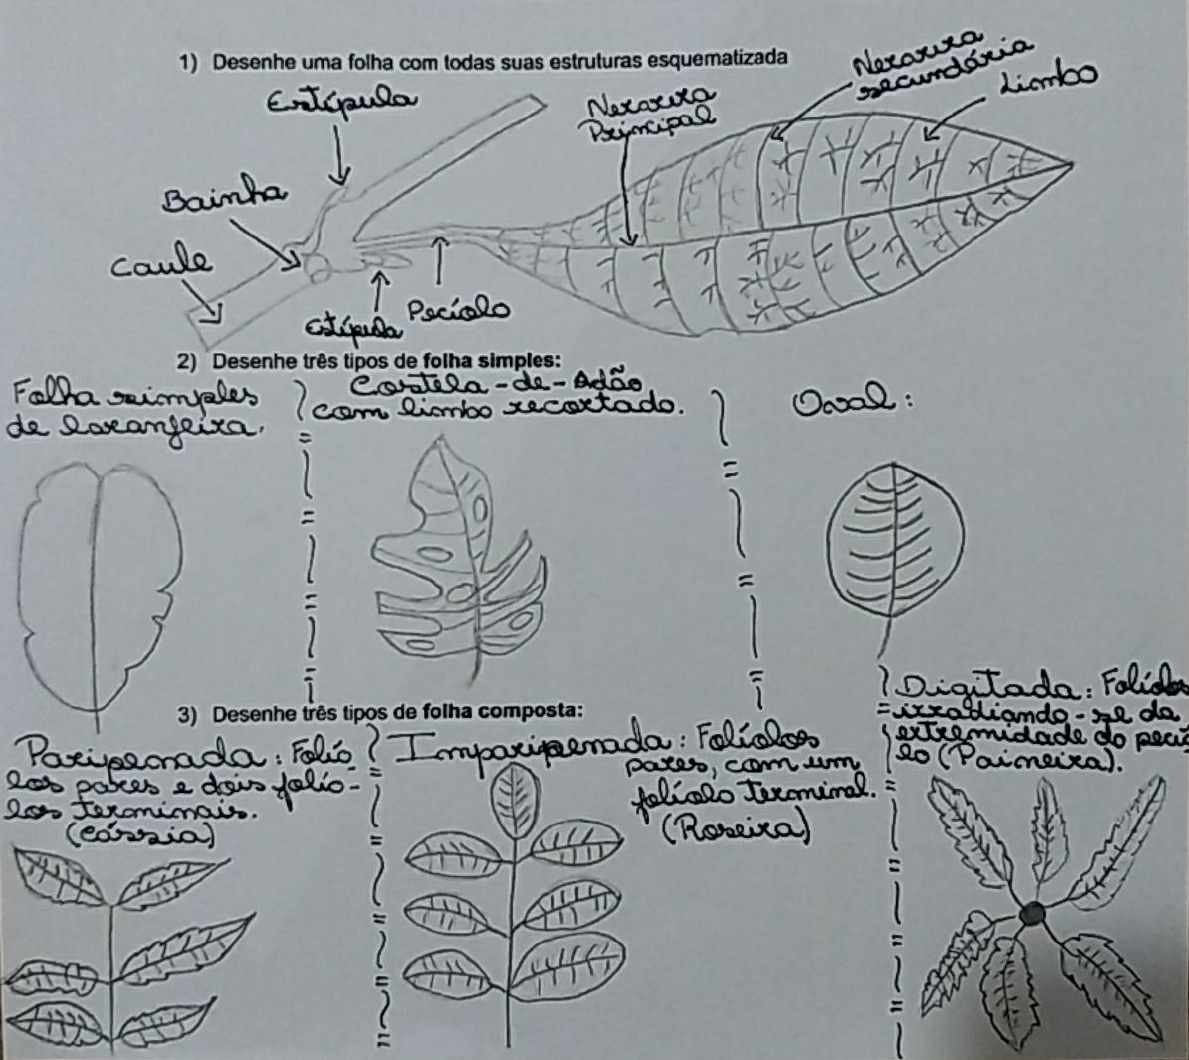 1) Desenhe uma folha com todas suas estruturas esquematizada
Estípula
Nervura
Principal
Nervura
secundária
Limbo
Bainha
Caule
Estípula
Pecíolo
2) Desenhe três tipos de folha simples:
Folha simples
de laranjeira.
Costela-de-Adão
com limbo recortado.
Oval:
3) Desenhe três tipos de folha composta:
Paripenada: Folío
los pares e dois folío-
los terminais.
(Cássia)
Imparipenada: Folíolos
pares, com um
folíolo terminal.
(Roseira)
Digitada: Folíolos
irradiando-se da
extremidade do pecío
lo (Paineira).